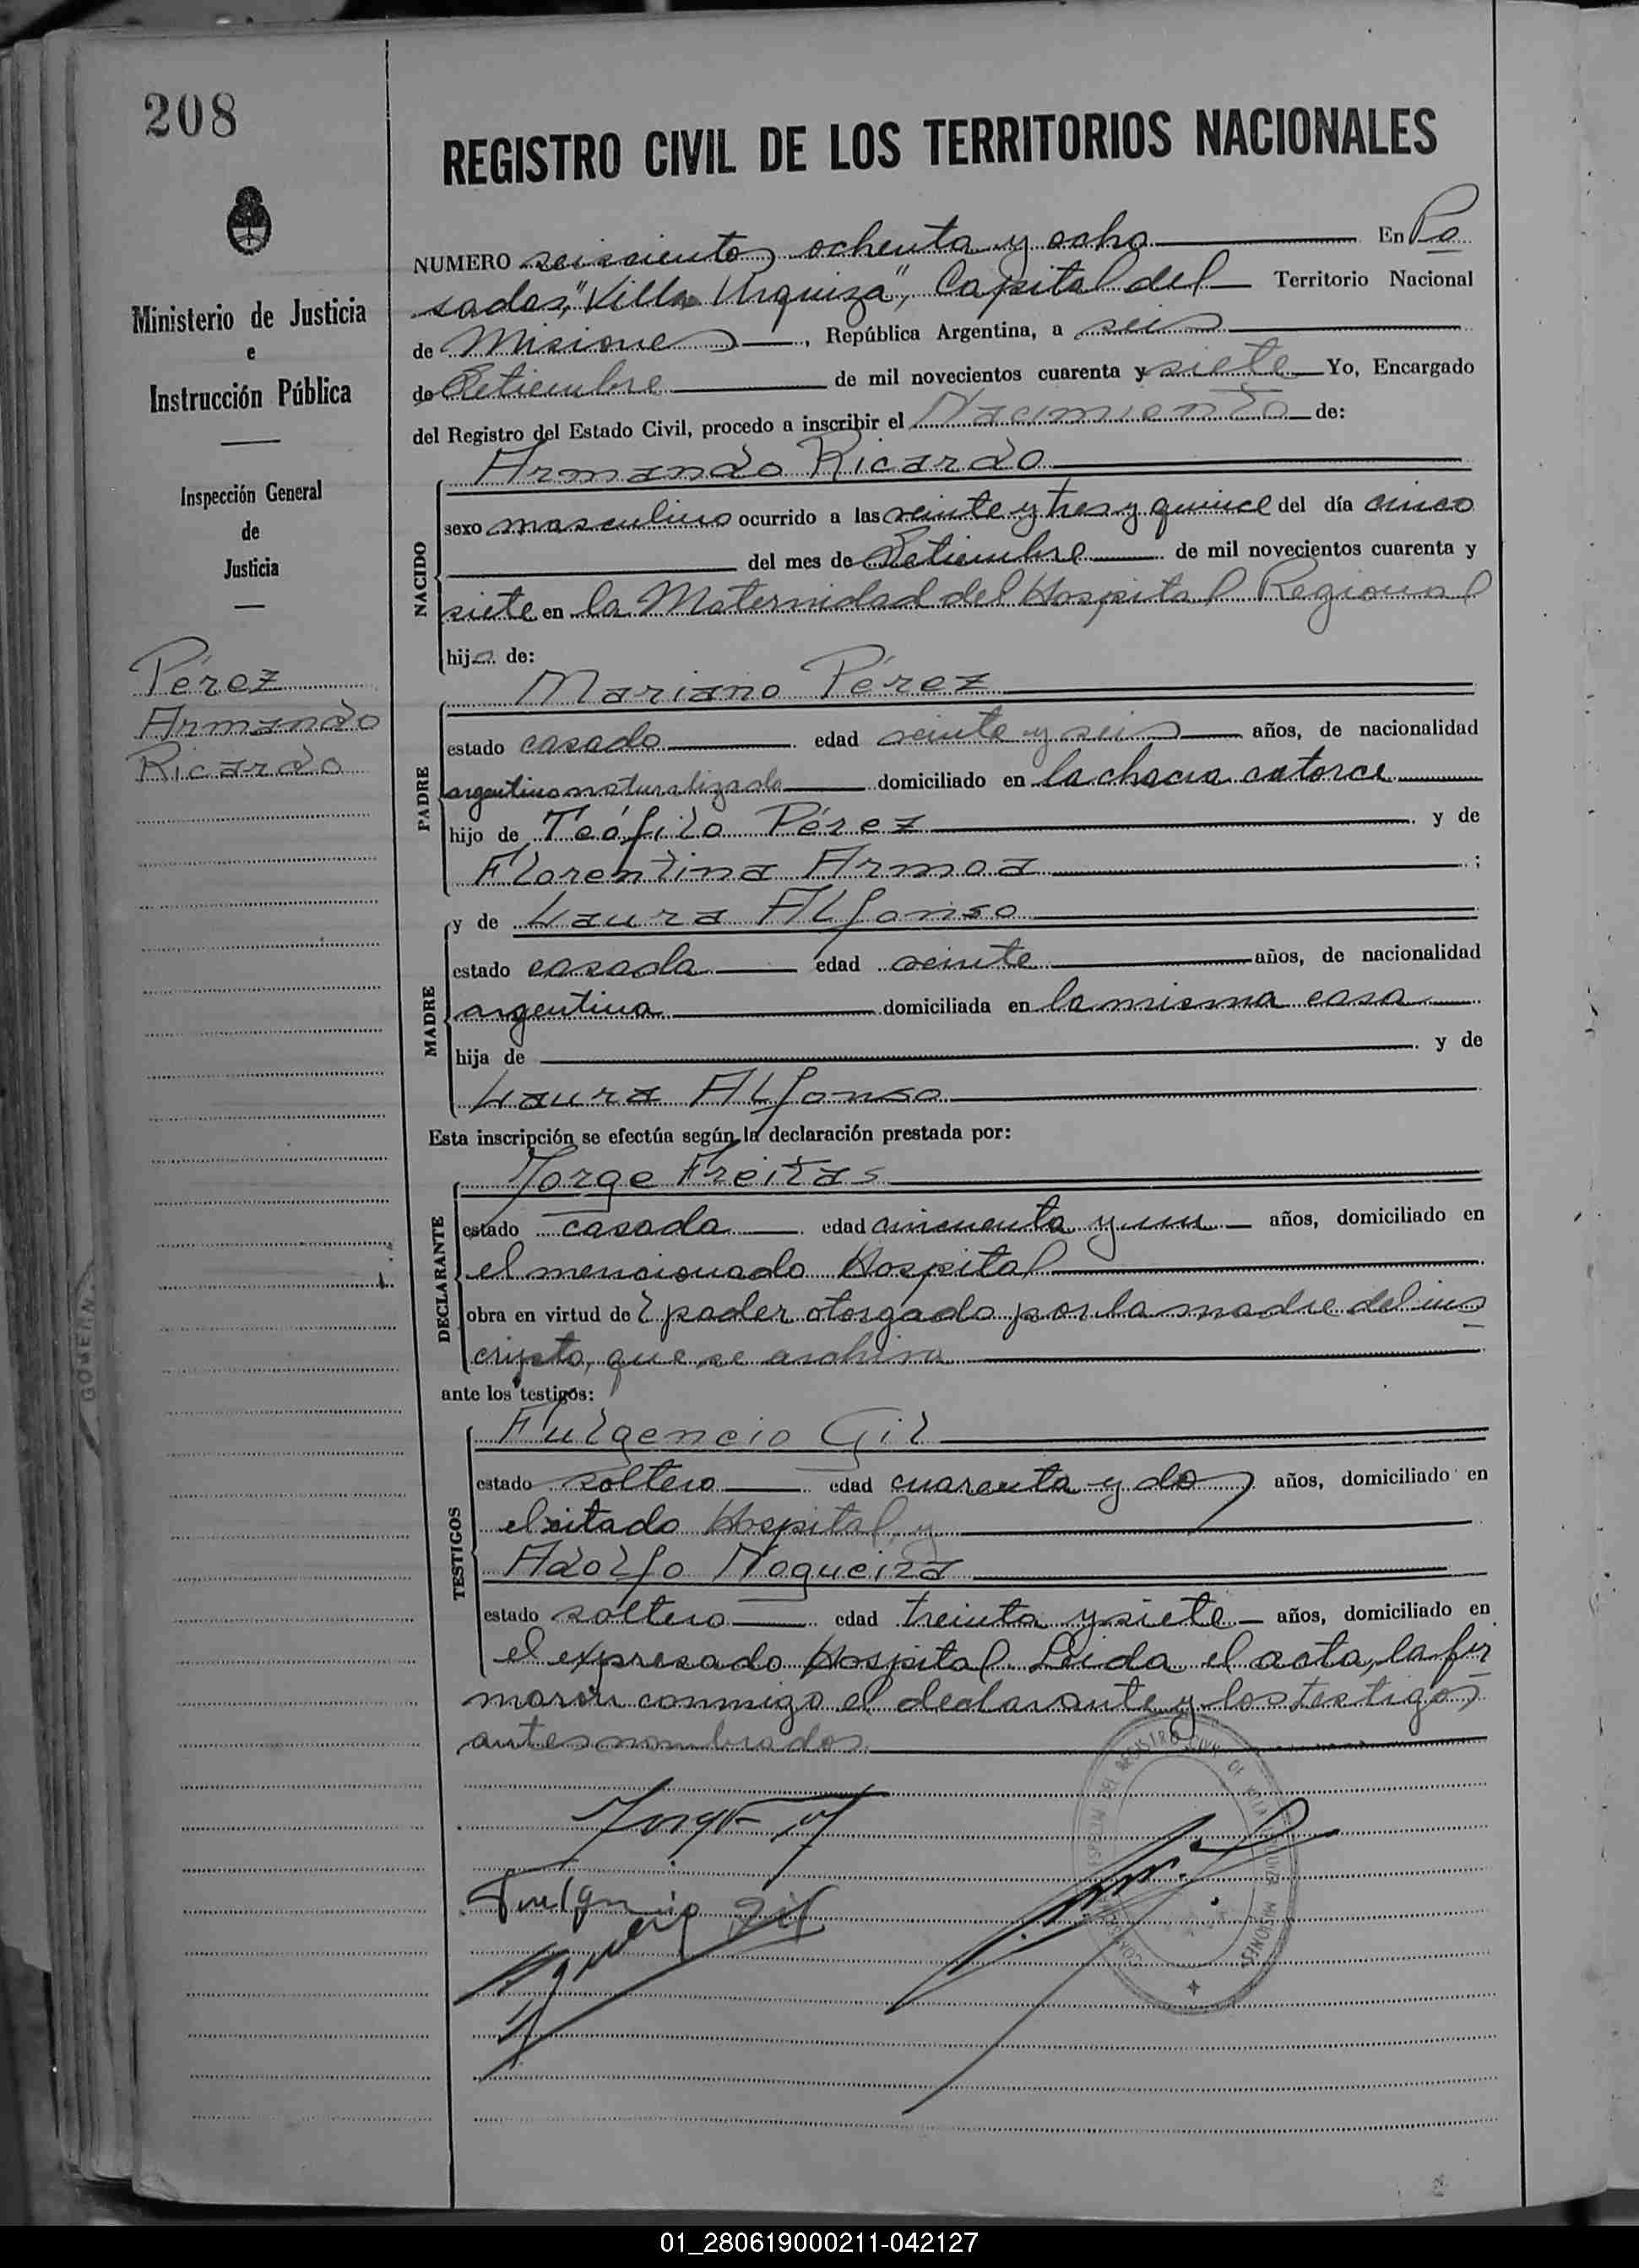 208
REGISTRO CIVIL DE LOS TERRITORIOS NACIONALES
Ministerio de Justicia
e
Instrucción Pública
Inspección General
de
Justicia
Pérez
Armando
Ricardo
NUMERO seiscientos ochenta y ocho En Po
sadas, "Villa Urquiza", Capital del Territorio Nacional
de Misiones, República Argentina, a seis
de Setiembre de mil novecientos cuarenta y siete Yo, Encargado
del Registro del Estado Civil, procedo a inscribir el Nacimiento de:
NACIDO
Armando Ricardo
sexo masculino ocurrido a las veinte y tres y quince del día cinco
del mes de Setiembre de mil novecientos cuarenta y
siete en la Maternidad del Hospital Regional
hijo de:
PADRE
Mariano Pérez
estado casado edad veinte y seis años, de nacionalidad
argentino naturalizado domiciliado en la chacra catorce
hijo de Teófilo Pérez y de
Florentina Armoa ;
MADRE
y de Laura Alfonso
estado casada edad veinte años, de nacionalidad
argentina domiciliada en la misma casa
hija de y de
Laura Alfonso
Esta inscripción se efectúa según la declaración prestada por:
DECLARANTE
Jorge Freitas
estado casado edad cincuenta y un años, domiciliado en
el mencionado Hospital
obra en virtud de poder otorgado por la madre del ins
cripto, que se archiva
ante los testigos:
TESTIGOS
Fulgencio Gil
estado soltero edad cuarenta y dos años, domiciliado en
el citado Hospital y
Adolfo Nogueira
estado soltero edad treinta y siete años, domiciliado en
el expresado Hospital. Leida el acta, la fir
maron conmigo el declarante y los testigos
antes nombrados.
Fulgencio Gil
GOMEIN
01_280619000211-042127